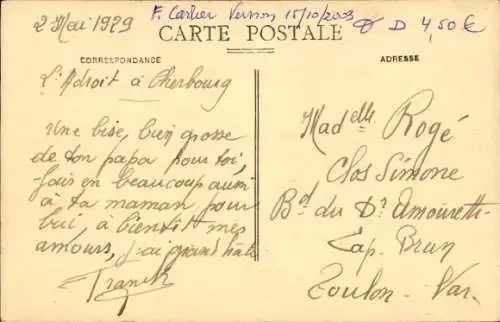 2 Mai 1929
F. Carlier Vernon 15/10/2003 D 4,50€
CARTE POSTALE
CORRESPONDANCE
ADRESSE
L'Adroit à Cherbourg
Une bise, bien grosse
de ton papa pour toi,
fais en beaucoup aussi
à ta maman pour
lui, à bientôt mes
amours, j'ai grand hâte
Franck
Mad elle Rogé
Clos Simone
Bd du Dr Amouretti
Cap. Brun
Toulon - Var.